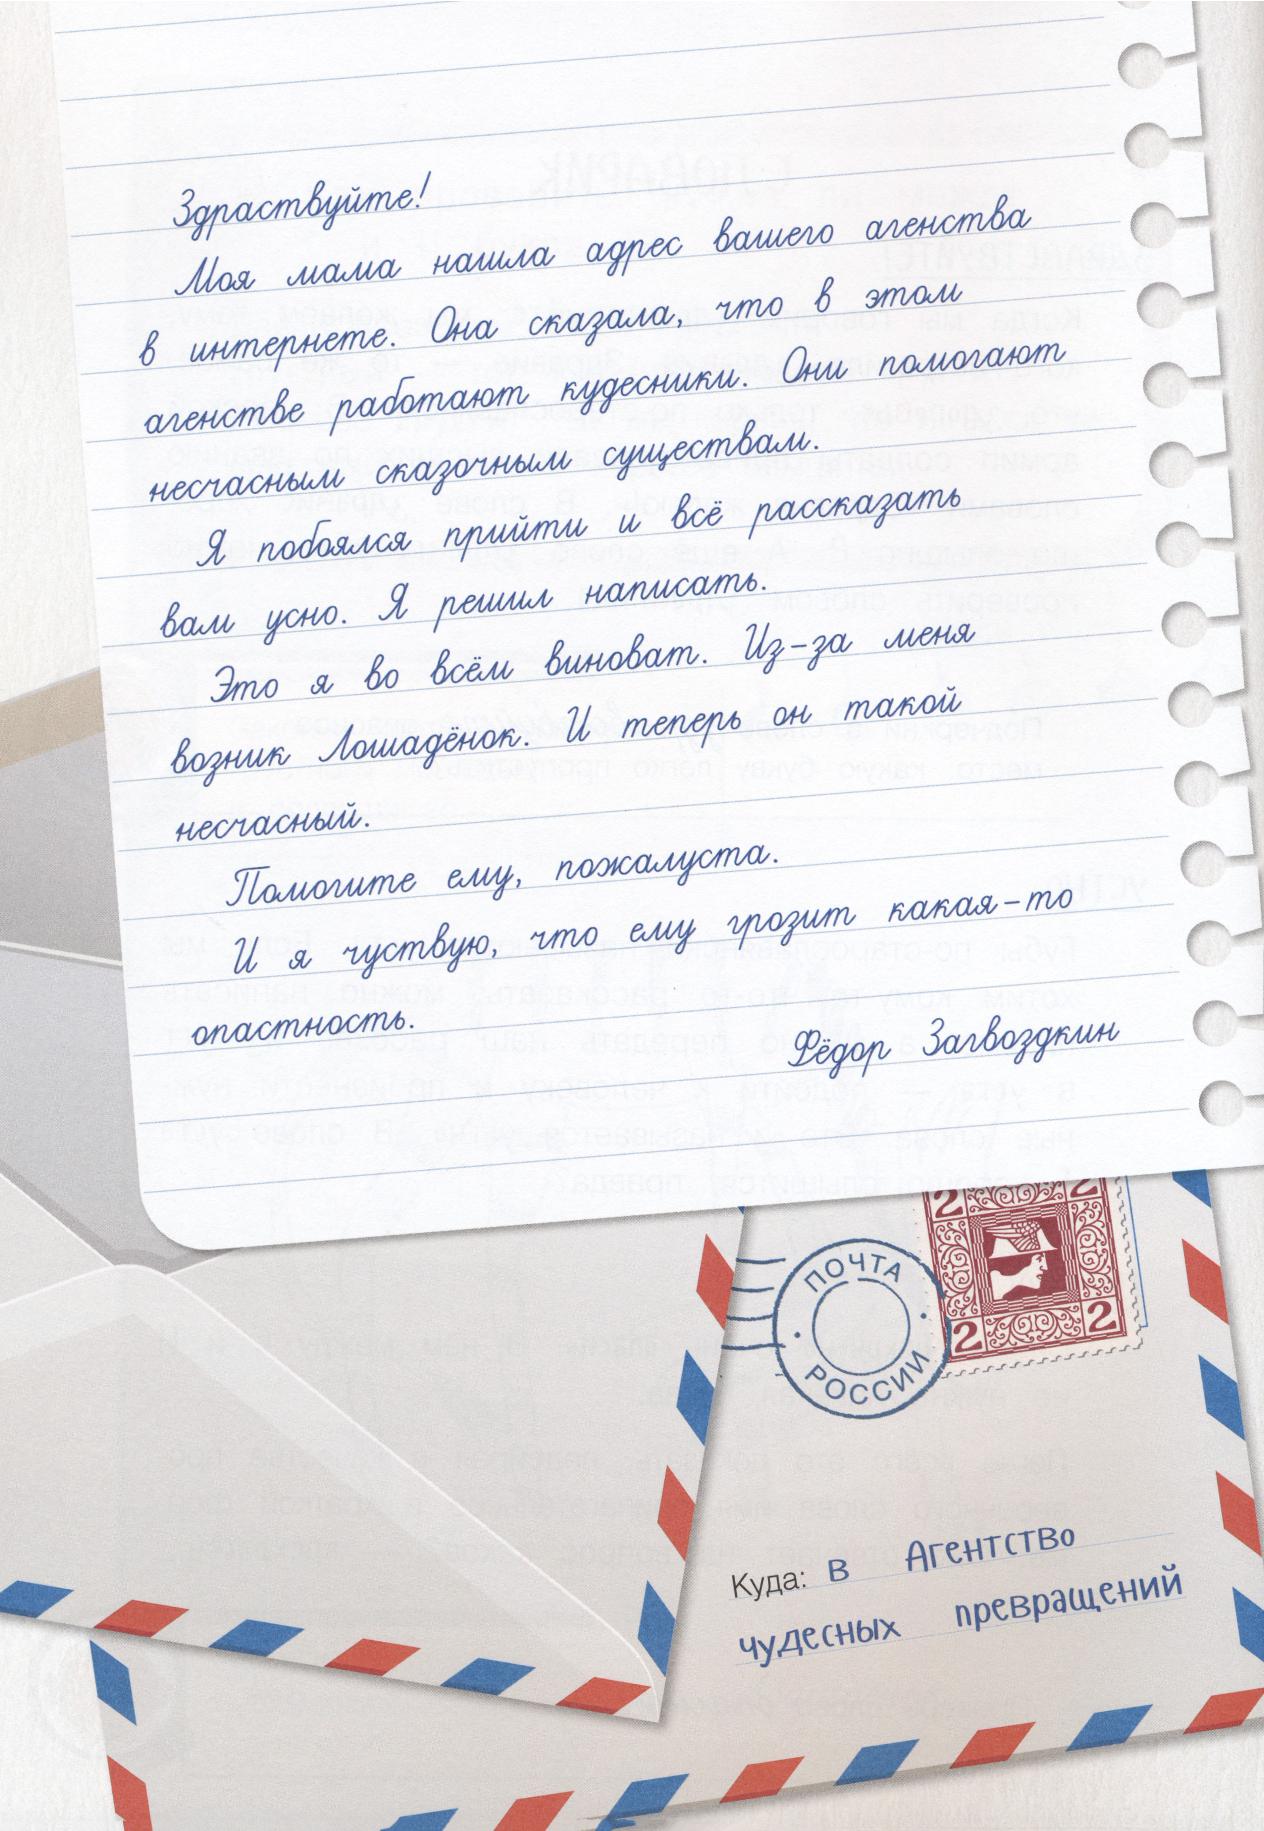 Здраствуйте!
Моя мама нашла адрес вашего агенства
в интернете. Она сказала, что в этом
агенстве работают кудесники. Они помогают
несчасным сказочным существам.
Я побоялся прийти и всё рассказать
вам усно. Я решил написать.
Это я во всём виноват. Из-за меня
возник Лошадёнок. И теперь он такой
несчасный.
Помогите ему, пожалуста.
И я чуствую, что ему грозит какая-то
опастность.
Фёдор Загвоздкин
2 2
ПОЧТА
РОССИИ
2 2
Куда: в Агентство
чудесных превращений